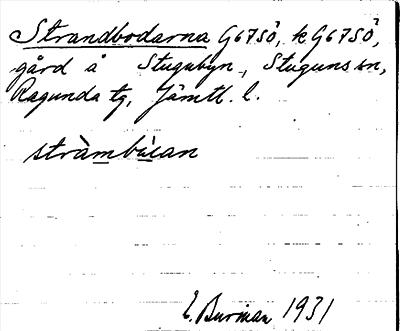 Strandbodarna G67SÖ, k G67SÖ,
gård å Stugubyn, Stuguns sn,
Ragunda tg, Jämtl. l.
stràmbùan
E. Burman 1931